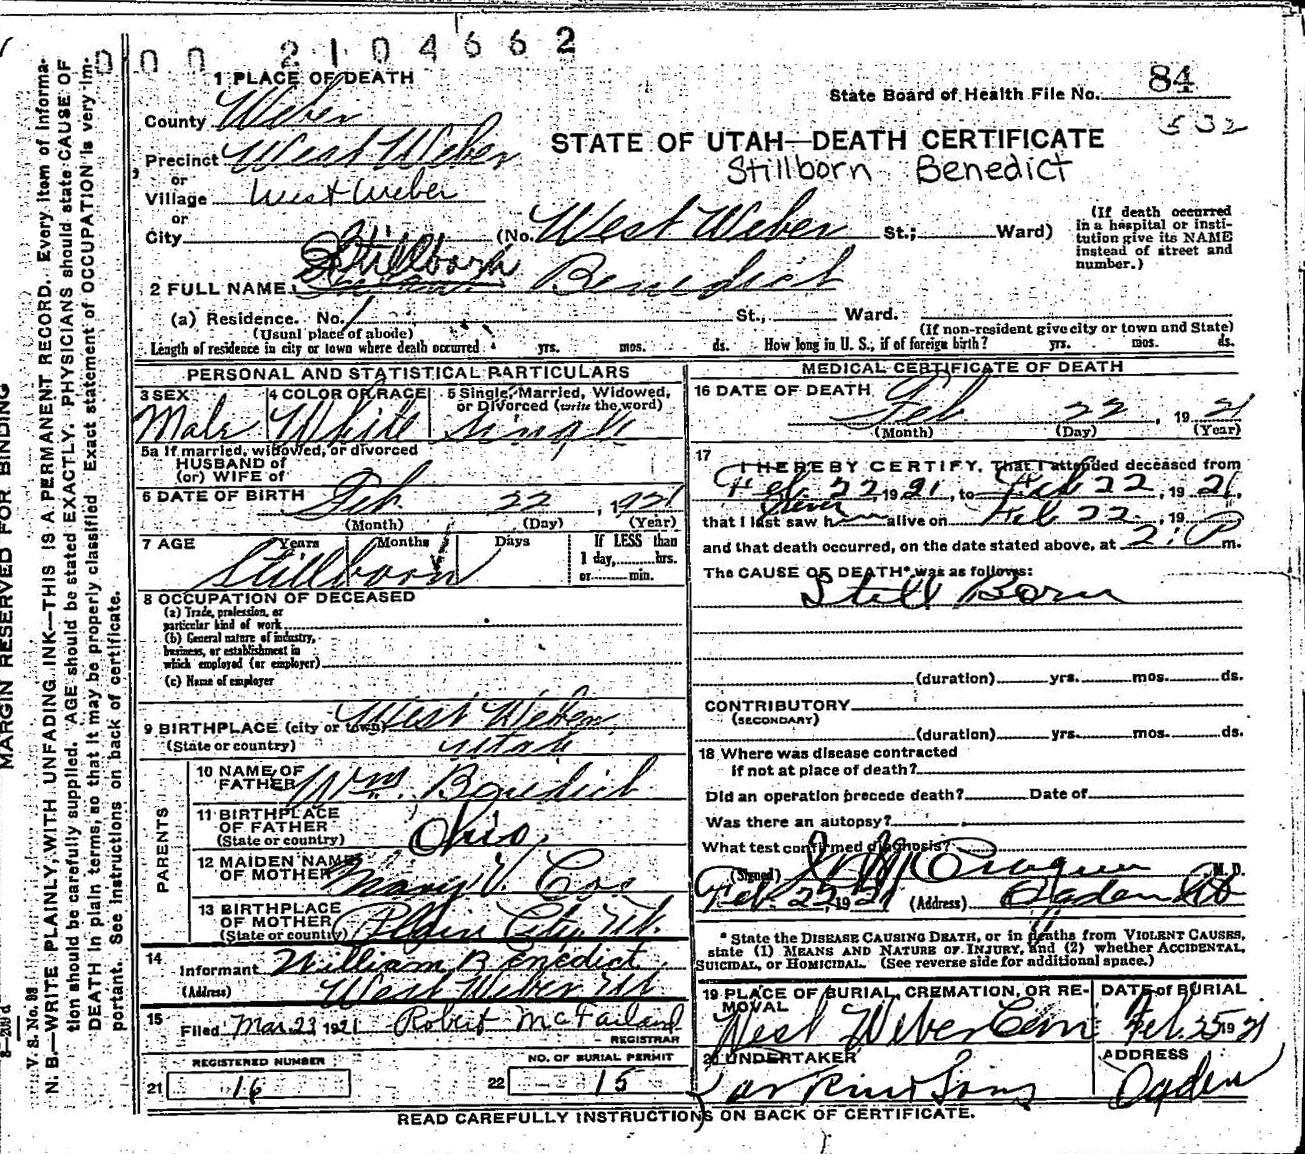 000 2104662
1 PLACE OF DEATH
State Board of Health File No. 84
532
County Weber
STATE OF UTAH—DEATH CERTIFICATE
Precinct West Weber
Stillborn Benedict
or
Village West Weber
or
City (No. West Weber St.; Ward)
(If death occurred in a hospital or insti-
tution give its NAME
instead of street and
number.)
2 FULL NAME Stillborn Benedict
(a) Residence. No. St., Ward.
(Usual place of abode) (If non-resident give city or town and State)
Length of residence in city or town where death occurred yrs. mos. ds. How long in U. S., if of foreign birth? yrs. mos. ds.
PERSONAL AND STATISTICAL PARTICULARS
3 SEX 4 COLOR OR RACE 5 Single, Married, Widowed,
or Divorced (write the word)
Male White Single
5a If married, widowed, or divorced
HUSBAND of
(or) WIFE of
6 DATE OF BIRTH Feb 22, 1921
(Month) (Day) (Year)
7 AGE Years Months Days If LESS than
1 day, hrs.
or min.
Stillborn
8 OCCUPATION OF DECEASED
(a) Trade, profession, or
particular kind of work
(b) General nature of industry,
business, or establishment in
which employed (or employer)
(c) Name of employer
9 BIRTHPLACE (city or town) West Weber
(State or country) Utah
PARENTS
10 NAME OF
FATHER Wm. Benedict
11 BIRTHPLACE
OF FATHER
(State or country) Ohio
12 MAIDEN NAME
OF MOTHER Mary V. Cox
13 BIRTHPLACE
OF MOTHER
(State or country) Plain City, Ut.
14
Informant William Benedict
(Address) West Weber Ut
15
Filed Mar. 23 1921 Robert McFarland
REGISTRAR
REGISTERED NUMBER NO. OF BURIAL PERMIT
21 16 22 15
MEDICAL CERTIFICATE OF DEATH
16 DATE OF DEATH
Feb 22, 1921
(Month) (Day) (Year)
17
I HEREBY CERTIFY, That I attended deceased from
Feb. 22 1921, to Feb 22, 1921,
that I last saw h alive on Feb 22, 19
and that death occurred, on the date stated above, at m.
The CAUSE OF DEATH* was as follows:
Still Born
(duration) yrs. mos. ds.
CONTRIBUTORY
(SECONDARY)
(duration) yrs. mos. ds.
18 Where was disease contracted
if not at place of death?
Did an operation precede death? Date of
Was there an autopsy?
What test confirmed diagnosis?
(Signed) M. D.
Feb. 22, 1921 (Address) Ogden Ut
* State the DISEASE CAUSING DEATH, or in deaths from VIOLENT CAUSES,
state (1) MEANS AND NATURE OF INJURY, and (2) whether ACCIDENTAL,
SUICIDAL, or HOMICIDAL. (See reverse side for additional space.)
19 PLACE OF BURIAL, CREMATION, OR RE-
MOVAL DATE of BURIAL
West Weber Cem Feb. 25 1921
20 UNDERTAKER ADDRESS
Larkin & Sons Ogden
READ CAREFULLY INSTRUCTIONS ON BACK OF CERTIFICATE.
MARGIN RESERVED FOR BINDING
V. S. No. 98
N. B.—WRITE PLAINLY, WITH UNFADING INK—THIS IS A PERMANENT RECORD. Every item of informa-
tion should be carefully supplied. AGE should be stated EXACTLY. PHYSICIANS should state CAUSE OF
DEATH in plain terms, so that it may be properly classified. Exact statement of OCCUPATION is very im-
portant. See instructions on back of certificate.